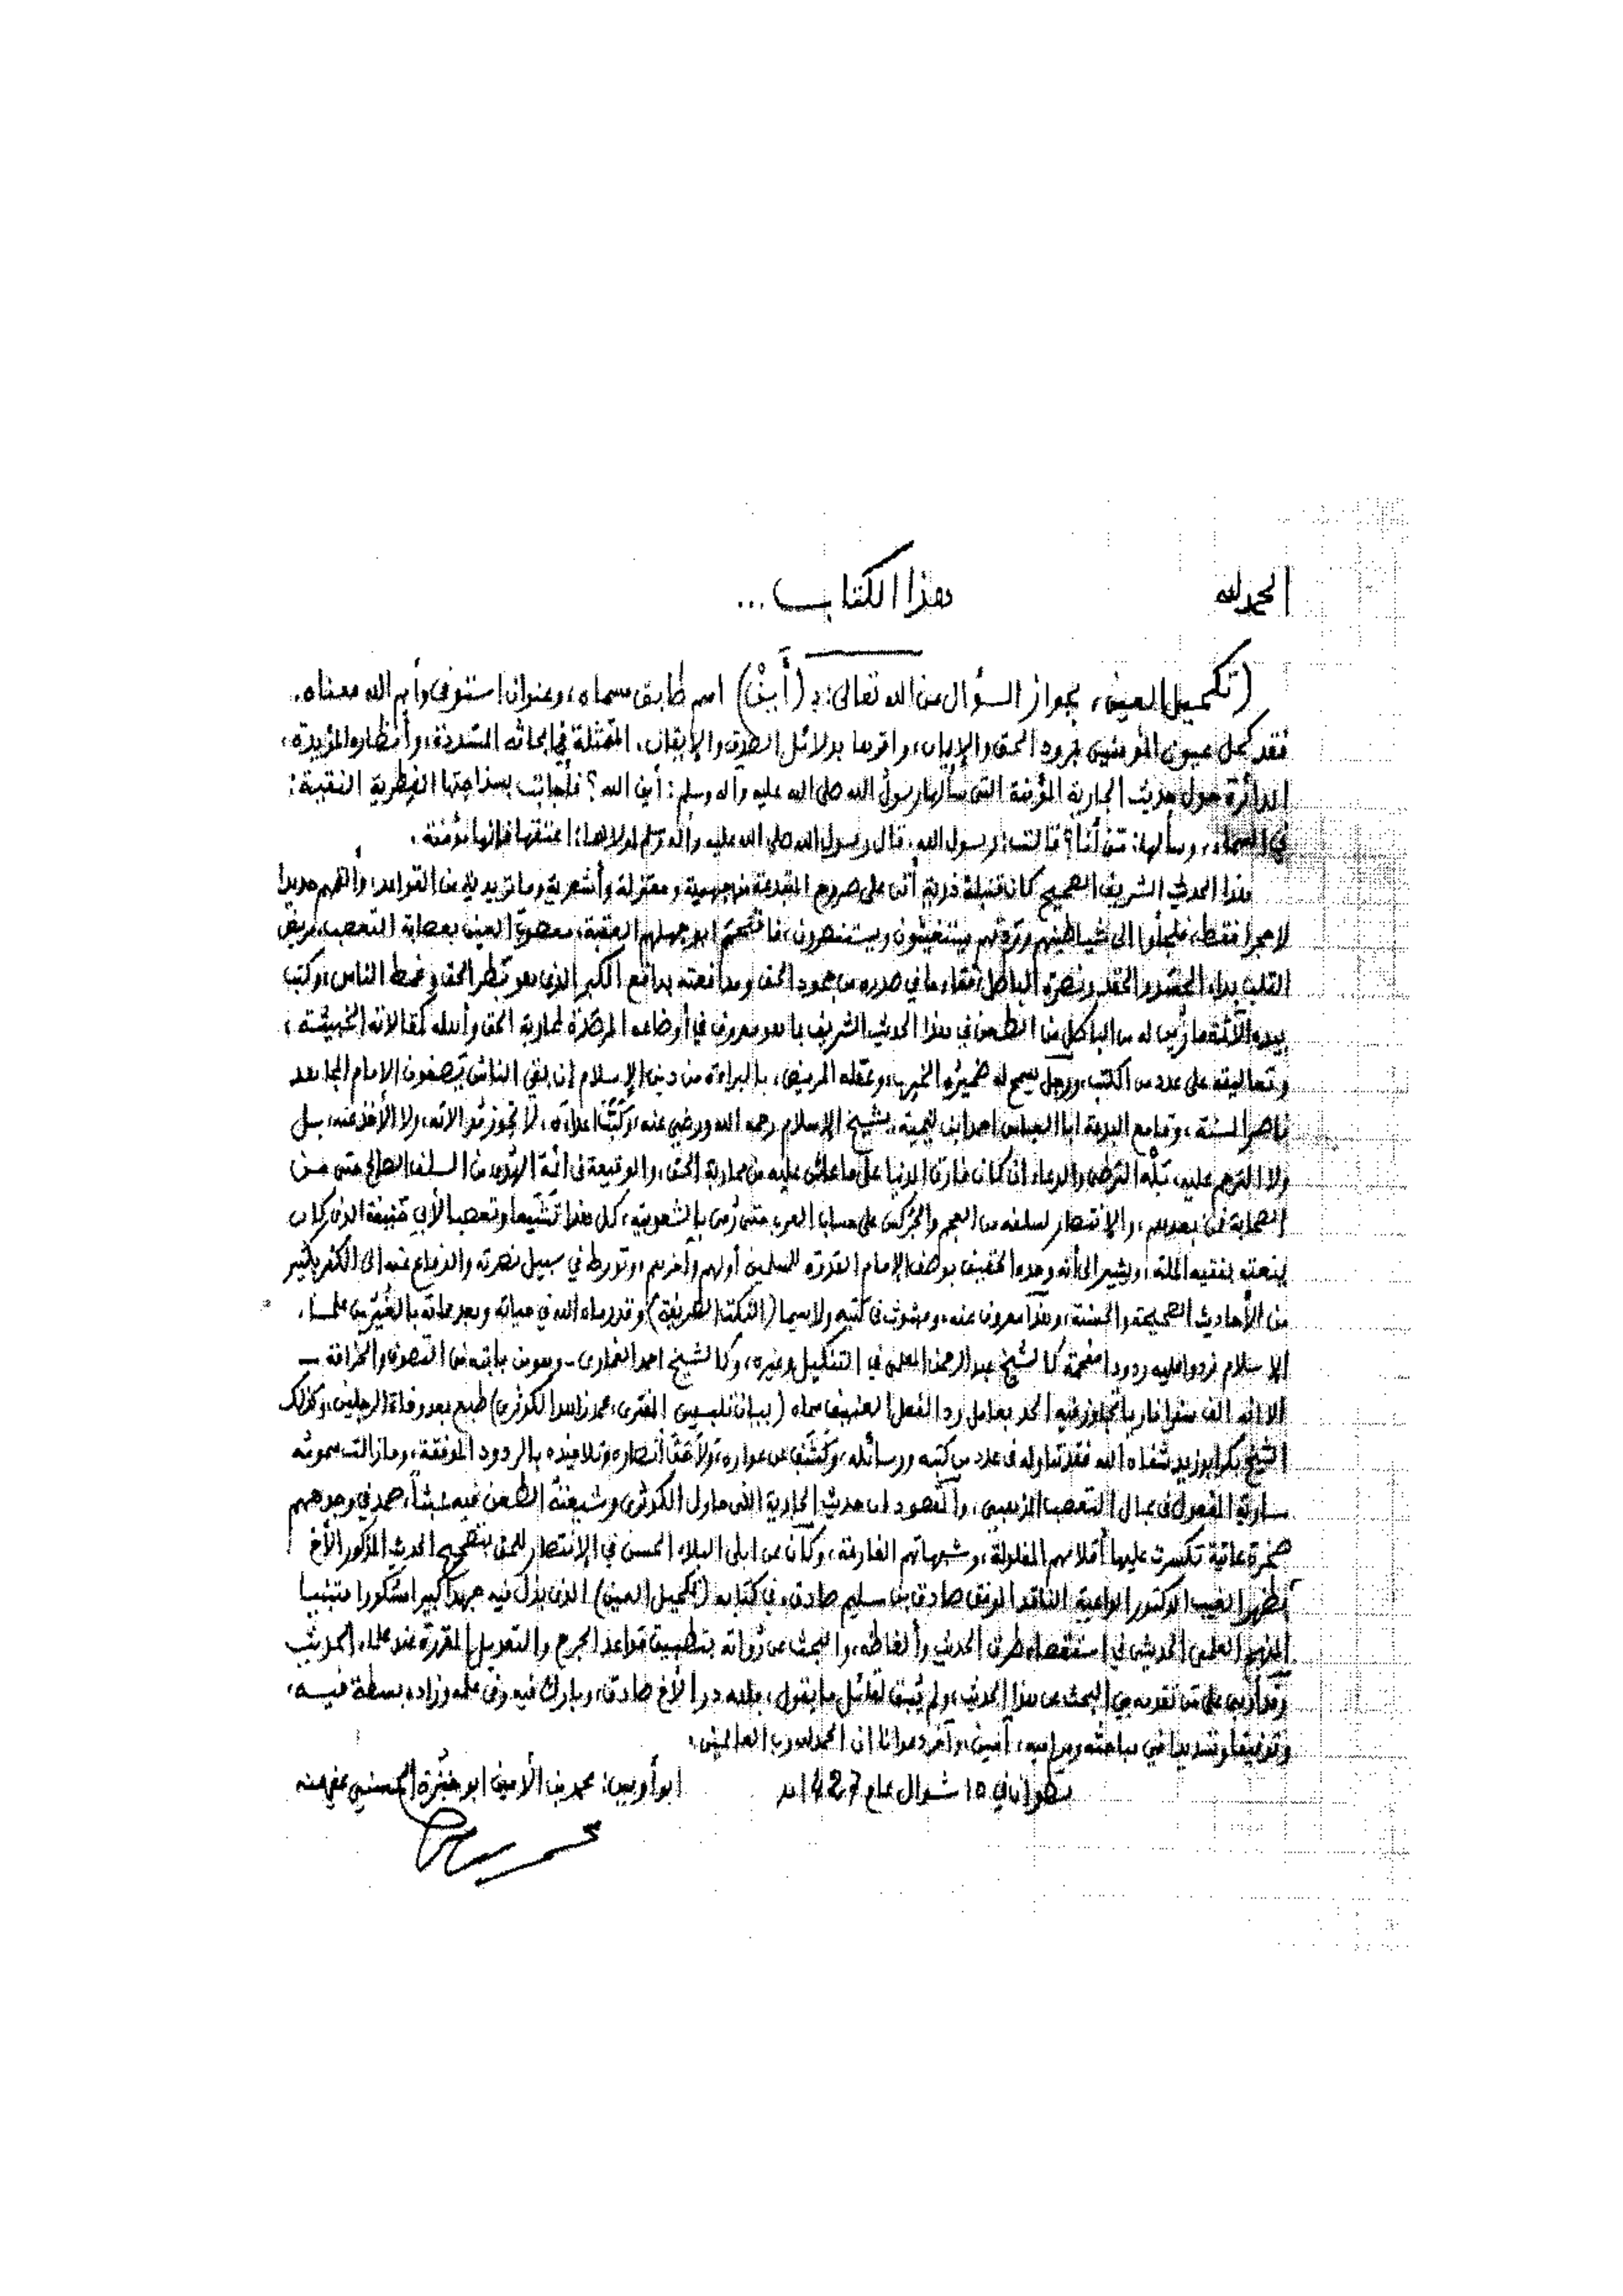 الحمد لله
هذا الكتاب ...
(تكحيل العين، بجواز السؤال عن الله تعالى: بـ (أَيْنَ) اسم طابق مسماه، وعنوان استوفى وأيم الله معناه.
فقد كحل عيون المؤمنين بِرود الحق والإيمان، وأقرها بدلائل الصدق والإيقان. المتمثلة في أبحاثه المسددة، وأنظاره المؤيدة،
الدائرة حول حديث الجارية المؤمنة التي سألها رسول الله صلى الله عليه وآله وسلم: أين الله؟ فأجابت بسذاجتها الفطرية النقية:
في السماء، وسألها: مَن أنا؟ قالت: رسول الله. قال رسول الله صلى الله عليه وآله وسلم لمولاها: اعتقها فإنها مؤمنة.
هذا الحديث الشريف الصحيح كان قنبلة ذرية أتى على صروح المبتدعة من جهمية ومعتزلة وأشعرية وماتريدية من القواعد، وألقمهم حديدا
لا حجرا فقط، فلجأوا إلى شياطينهم يستغيثون ويستنصرون، فاقتحم أبو جهلهم العقبة، معصوب العين بعصابة التعصب، مريض
القلب بداء الحسد والحقد ونصرة الباطل، فقاء ما في صدره من جحود الحق ومدافعته بدافع الكبر الذي هو بَطَر الحق وغمط الناس، وكتب
بيده الآثمة ما زُين له من الباطل من الطعن في هذا الحديث الشريف بما هو معروف في أوضاعه المرصَدة لمحاربة الحق وأهله كمقالاته الخبيثة،
وتعاليقه على عدد من الكتب، ورجل يسمح له ضميرُه الخرِب، وعقله المريض، بالبراءة من دين الإسلام إن بقي الناس يَصفون الإمام المجاهد
ناصر السنة، وقامع البدعة أبا العباس أحمد ابن تيمية بشيخ الإسلام رحمه الله ورضي عنه، وكَبَتَ أعداءه. لا تجوز مُوالاته، ولا الأخذ عنه، بل
ولا الترحم عليه، بَلْه الترضي والدعاء إن كان فارق الدنيا على ما عاش عليه من محاربة الحق، والوقيعة في أئمة الهُدى من السلف الصالح حتى من
الصحابة فمن بعدهم، والانتصار لسلفه من العجم والجركس على حساب العرب حتى رُمي بالشعوبية، كل هذا تشيعا وتعصبا لأبي حنيفة الذي كان
ينعته بفقيه الملة، ويشير إلى أنه وحده الحقيق بوصف الإمام القدوة للمسلمين أولهم وآخرهم، وتورط في سبيل نصرته والدفاع عنه إلى الكفر بكثير
من الأحاديث الصحيحة والحسنة، وهذا معروف عنه، ومبثوث في كتبه ولا سيما (النكت الطريفة) وقد رماه الله في حياته وبعد مماته بالغُيُر من علماء
الإسلام فردوا عليه ردودا مفحمة كالشيخ عبد الرحمن المعلمي في التنكيل وغيره، وكالشيخ أحمد الغماري - وهو من بابته من التصوف والخرافة -
إلا أنه ألف سفرا ناريا تجاوز فيه الحد بعامل رد الفعل العنيف سماه (بيان تلبيس المفتري، محمد زاهد الكوثري) طبع بعد وفاة الرجلين، وكذلك
الشيخ بكر أبو زيد شفاه الله فقد تناوله في عدد من كتبه ورسائله، وكَشَف عن عواره، ولاحق أنصاره وتلاميذه بالردود الموفقة، وما زالت سمومُه
سارية المفعول في مجال التعصب المذهبي، والمقصود أن حديث الجارية التي حاول الكوثري وشيعتُه الطعن فيه عبثاً، صمد في وجههم
صخرة عاتية تكسرت عليها أقلامهم المفلولة، وشبهاتهم الفارغة، وكان ممن أبلى البلاء الحسن في الانتصار للحق بتصحيح الحديث المذكور الأخ
بظهر الغيب الدكتور الواعية الناقد الموفق صادق بن سليم صادق، في كتابه (تكحيل العين) الذي بذل فيه جهدا كبيرا مشكورا متبنيا
المنهج العلمي الحديثي في استقصاء طرق الحديث وألفاظه، والبحث عن رُواته بتطبيق قواعد الجرح والتعديل المقررة عند علماء الحديث
وقد أربى على مَن تقدمه في البحث عن هذا الحديث، ولم يُبق لقائل ما يقول، فلله در الأخ صادق، وبارك فيه وفي علمه وزاده بسطة فيه،
وتوفيقا وتسديدا في مباحثه ومراميه، آمين، وآخر دعوانا أن الحمد لله رب العالمين.
تطوان في 15 شوال عام 1427 هـ أبو أويس: محمد بن الأمين أبو خبزة الحسني عفي عنه